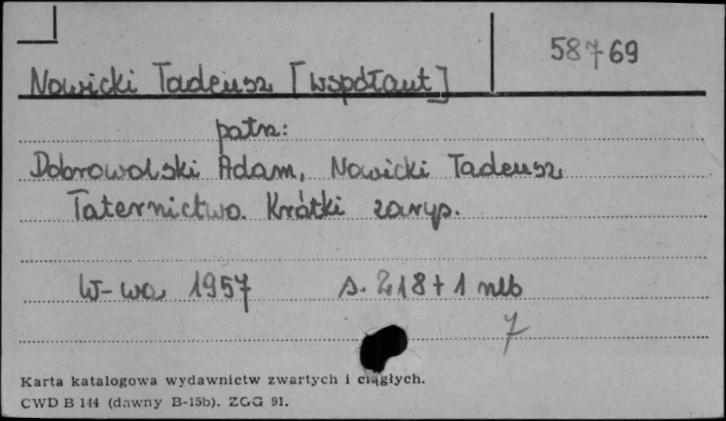 58769
Nowicki Tadeusz [współaut]
patrz:
Dobrowolski Adam, Nowicki Tadeusz
Taternictwo. Krótki zarys.
W-wa 1957 s. 218+1 nlb
7
Karta katalogowa wydawnictw zwartych i ciągłych.
CWD B 144 (dawny B-15b). ZGG 91.